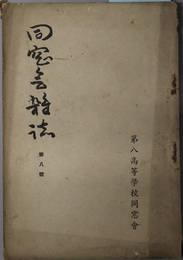 同窓會雜誌
第八號
第八高等學校同窓會